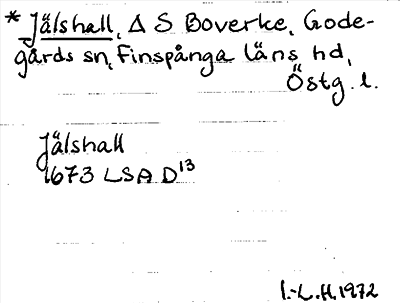 * Jälshall, Δ S Boverke, Gode-
gårds sn, Finspånga läns hd,
Östg. l.
Jälshall
1673 LSA D13
I.-L.H. 1972